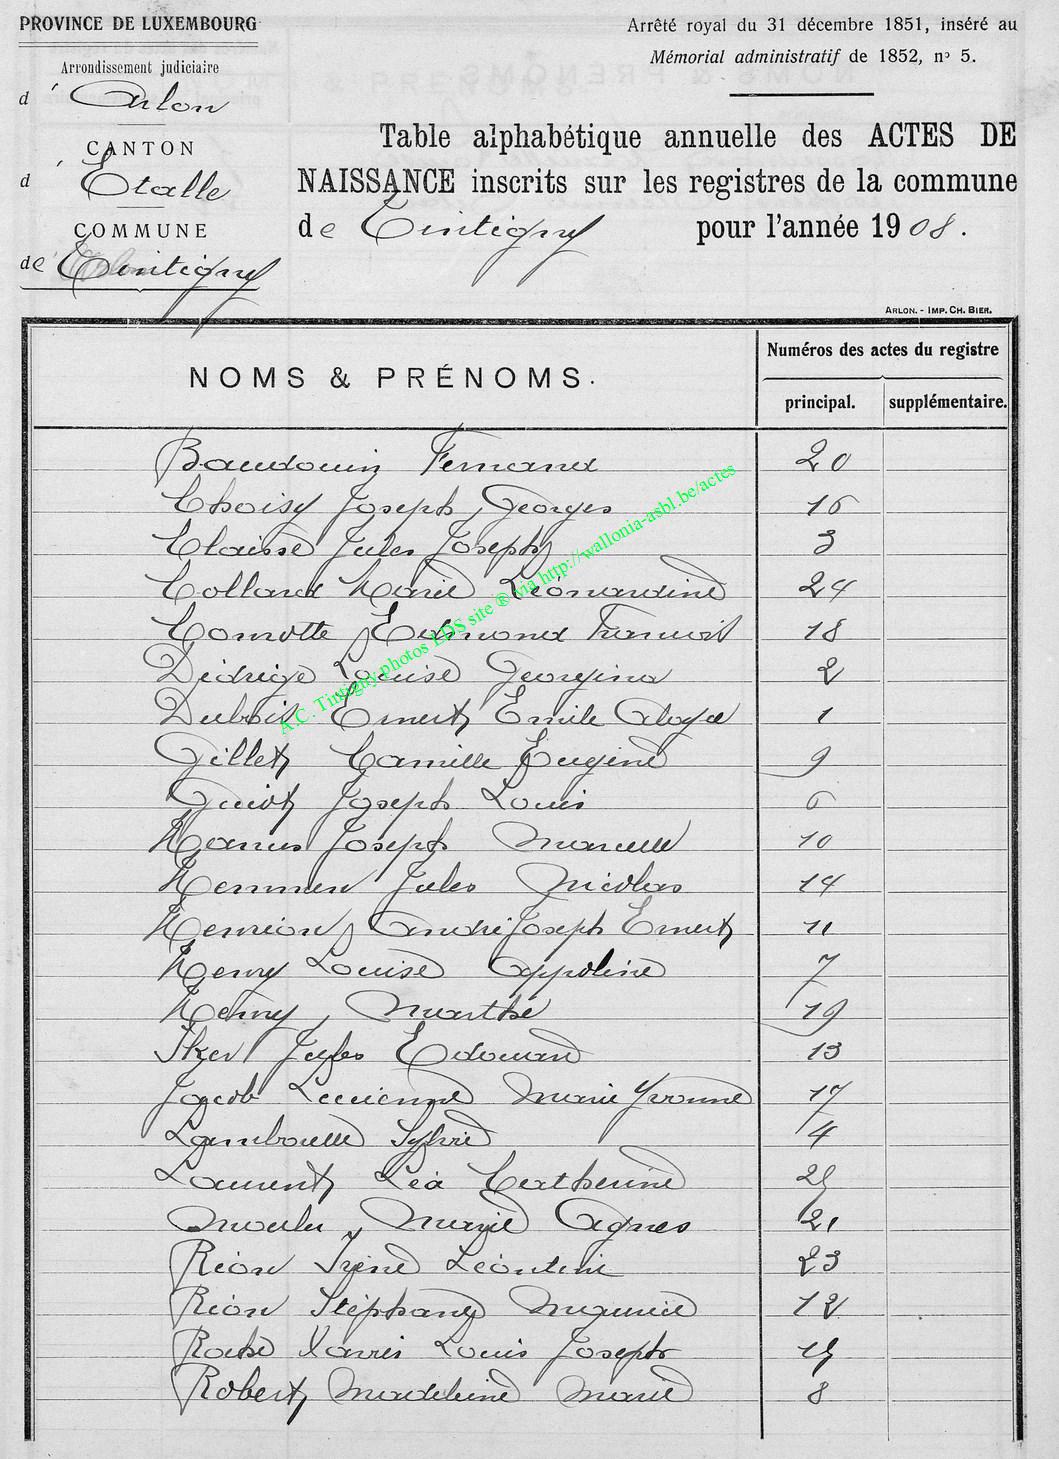 PROVINCE DE LUXEMBOURG
Arrondissement judiciaire
d' Arlon
CANTON
d' Etalle
COMMUNE
de Tintigny
Arrêté royal du 31 décembre 1851, inséré au
Mémorial administratif de 1852, nº 5.
Table alphabétique annuelle des ACTES DE
NAISSANCE inscrits sur les registres de la commune
de Tintigny pour l'année 1908.
ARLON. - IMP. CH. BIER.
NOMS & PRÉNOMS.
Numéros des actes du registre
principal. supplémentaire.
Baudouin Fernand 20
Choisy Joseph Georges 16
Claisse Jules Joseph 3
Collard Marie Léonardine 24
Cornette Edmond François 18
Louise Georgina 2
Dubois Ernest Emile 1
Gillet Camille Eugène 9
Guiot Joseph Louis 6
Hanus Joseph Marcelle 10
Hemmen Jules Nicolas 14
Henrion, André Joseph Ernest 11
Henry Louise Appoline 7
Henry, Marthe 19
Jules Edouard 13
Jacob Lucienne Marie Yvonne 17
Sylvie 4
Laurent Léa Catherine 25
Marie Agnes 21
Rion Irène Léontine 23
Rion Stéphany Maurice 12
Xavier Louis Joseph 15
Robert Madeleine Marie 8
A.C. Tintigny photos LDS site ® via http://wallonia-asbl.be/actes